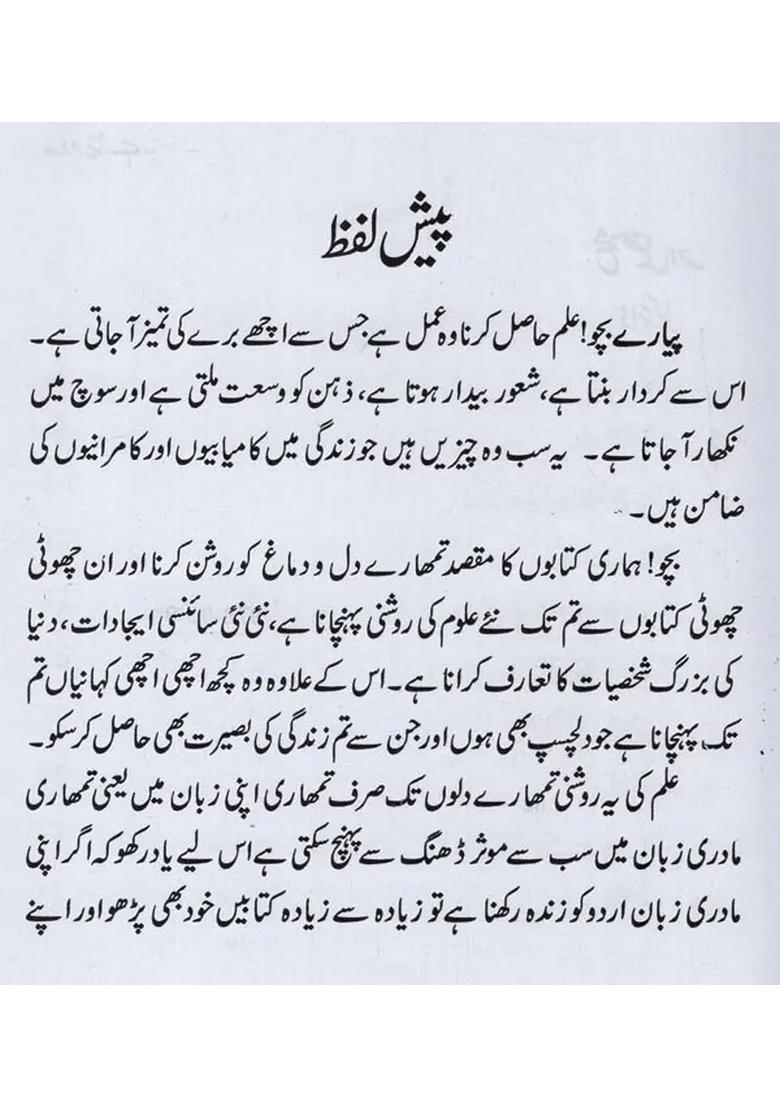 پیش لفظ
پیارے بچو! علم حاصل کرنا وہ عمل ہے جس سے اچھے برے کی تمیز آ جاتی ہے۔
اس سے کردار بنتا ہے، شعور بیدار ہوتا ہے، ذہن کو وسعت ملتی ہے اور سوچ میں
نکھار آ جاتا ہے۔ یہ سب وہ چیزیں ہیں جو زندگی میں کامیابیوں اور کامرانیوں کی
ضامن ہیں۔
بچو! ہماری کتابوں کا مقصد تمھارے دل و دماغ کو روشن کرنا اور ان چھوٹی
چھوٹی کتابوں سے تم تک نئے علوم کی روشنی پہنچانا ہے، نئی نئی سائنسی ایجادات، دنیا
کی بزرگ شخصیات کا تعارف کرانا ہے۔ اس کے علاوہ وہ کچھ اچھی اچھی کہانیاں تم
تک پہنچانا ہے جو دلچسپ بھی ہوں اور جن سے تم زندگی کی بصیرت بھی حاصل کر سکو۔
علم کی یہ روشنی تمھارے دلوں تک صرف تمھاری اپنی زبان میں یعنی تمھاری
مادری زبان میں سب سے موثر ڈھنگ سے پہنچ سکتی ہے اس لیے یاد رکھو کہ اگر اپنی
مادری زبان اردو کو زندہ رکھنا ہے تو زیادہ سے زیادہ کتابیں خود بھی پڑھو اور اپنے